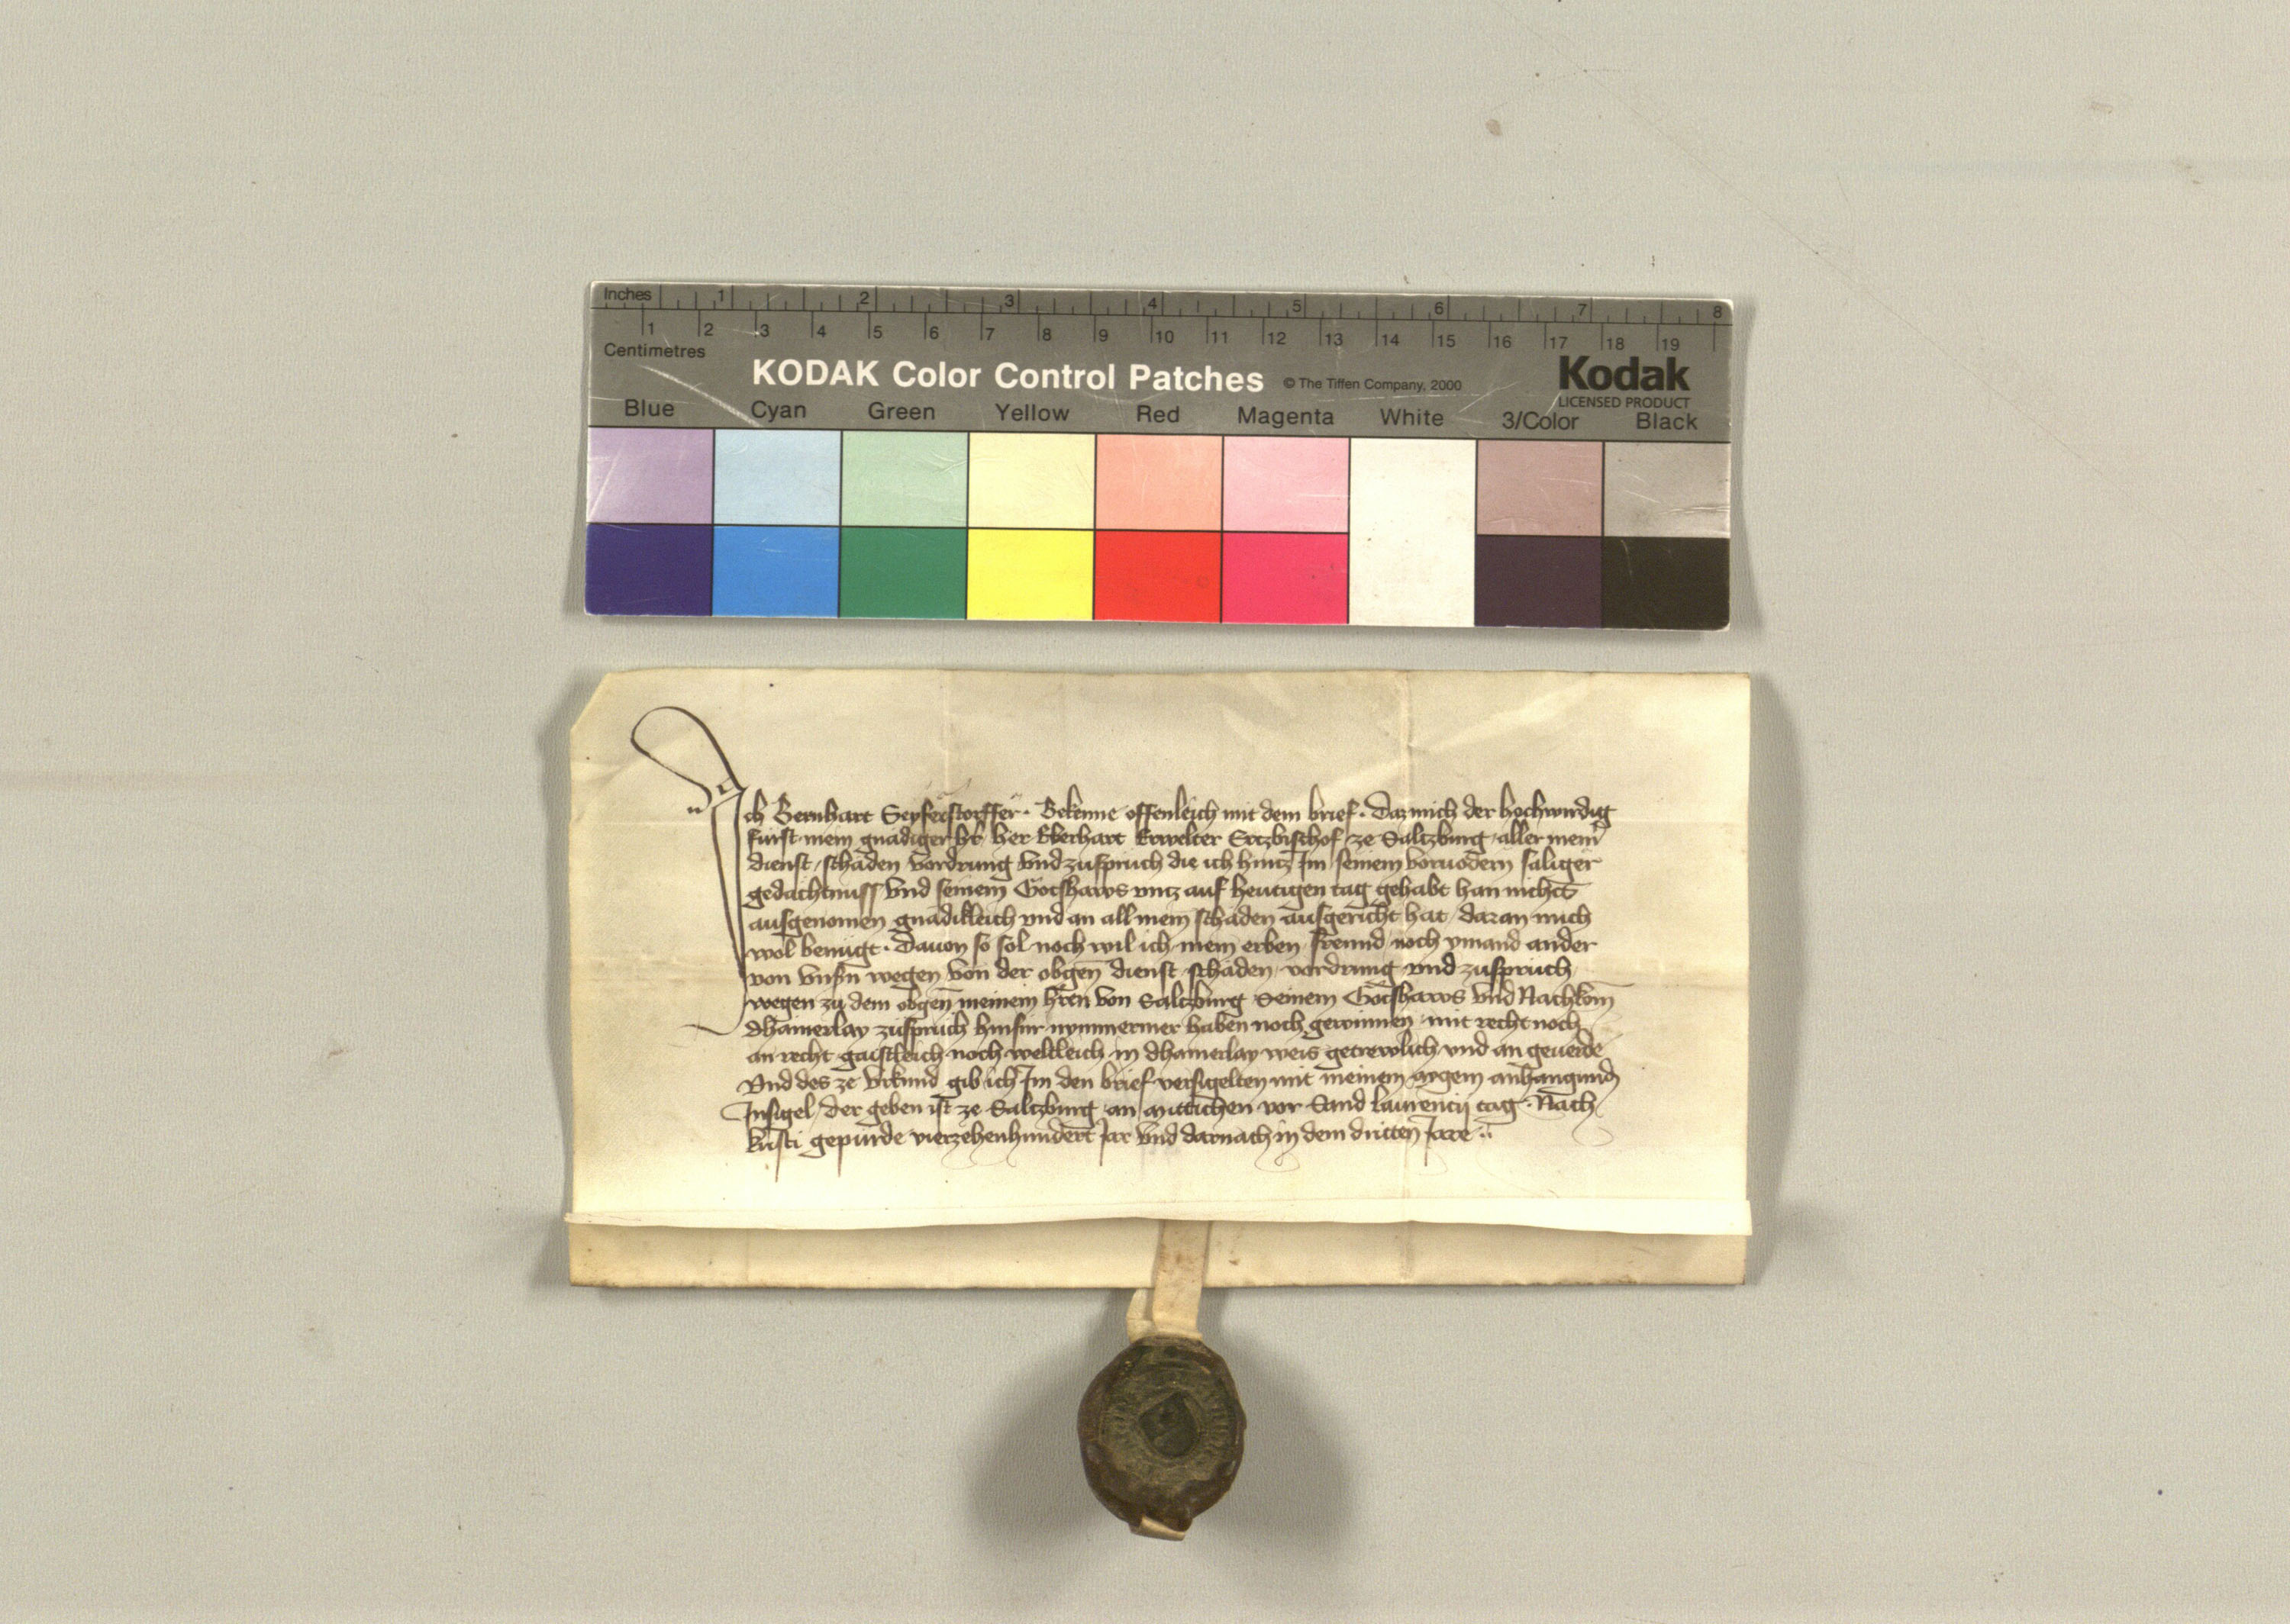 Inches 1 2 3 4 5 6 7 8
1 2 3 4 5 6 7 8 9 10 11 12 13 14 15 16 17 18 19
Centimetres
KODAK Color Control Patches © The Tiffen Company, 2000 Kodak
LICENSED PRODUCT
Blue Cyan Green Yellow Red Magenta White 3/Color Black
Ich Bernhart Seyferstorffer. Bekenne offenleich mit dem brief. Daz mich der hochwirdig
fürst mein gnädiger hr̄ her Eberhart Erwelter Ertzbischof ze Saltzburg aller meinr̄
dienst schäden vordrung vnd zuspruch die ich hintz Im seinem voruodern säliger
gedächtnuss vnd seinem Gotshaws vntz auf hewtigen tag gehabt han nichts
ausgenomen gnädikleich vnd an all mein schäden ausgericht hat daran mich
wol benügt. Dauon so sol noch wil ich mein erben frewnd noch ymand ander
von vnsn̄ wegen von der obgen̄ dienst schäden vordrung vnd zuspruch
wegen zu dem obgen̄ meinem hr̄en von Saltzburg seinem Gotshaws vnd Nachkom̄
dhainerlay zuspruch hinfür nymmermer haben noch gewinnen mit recht noch
an recht gaistleich noch weltleich in dhainerlay weis getrewlich vnd an geuerde
Vnd des ze vrkund gib ich Im den brief versigelten mit meinem aygem anhangundn̄
Insigel der geben ist ze Saltzburg an mittichen vor Sand Laurencij tag. Nach
kristi gepurde vierzehenhundert Jar vnd darnach in dem dritten Jare